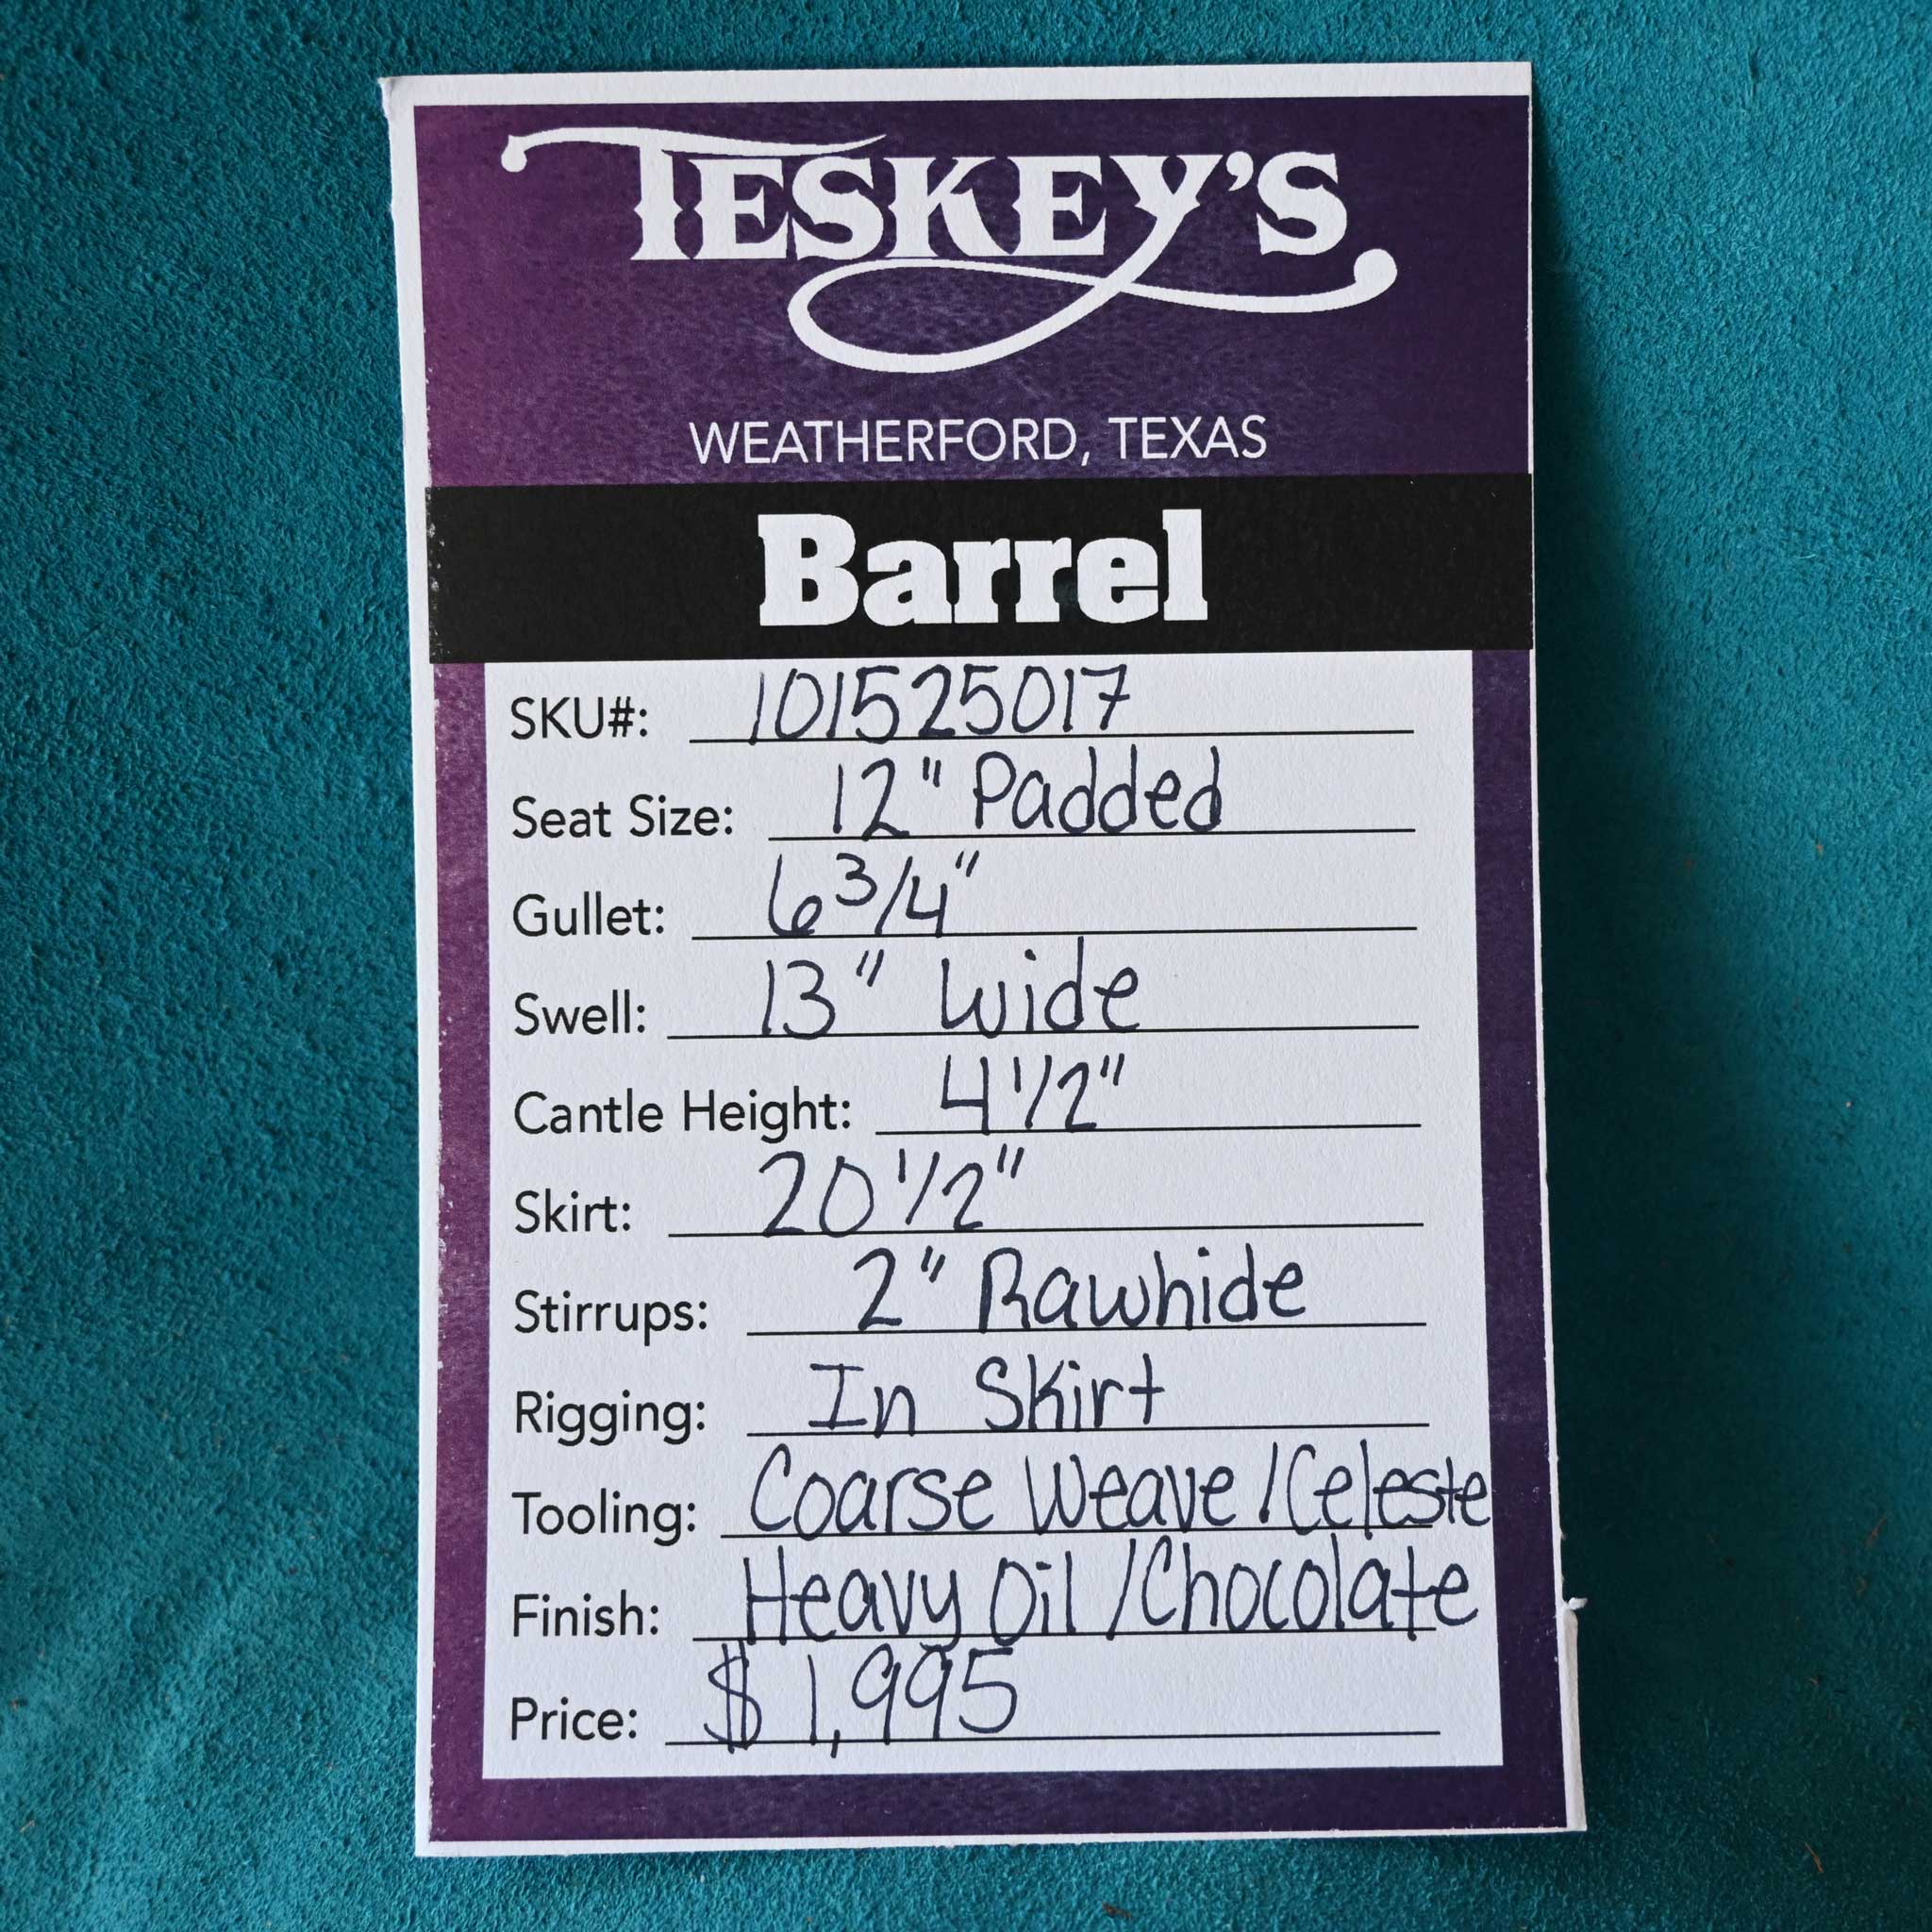 TESKEY'S
WEATHERFORD, TEXAS
Barrel
SKU#: 101525017
Seat Size: 12" Padded
Gullet: 6 3/4"
Swell: 13" Wide
Cantle Height: 4 1/2"
Skirt: 20 1/2"
Stirrups: 2" Rawhide
Rigging: In Skirt
Tooling: Coarse Weave / Celeste
Finish: Heavy Oil / Chocolate
Price: $1,995